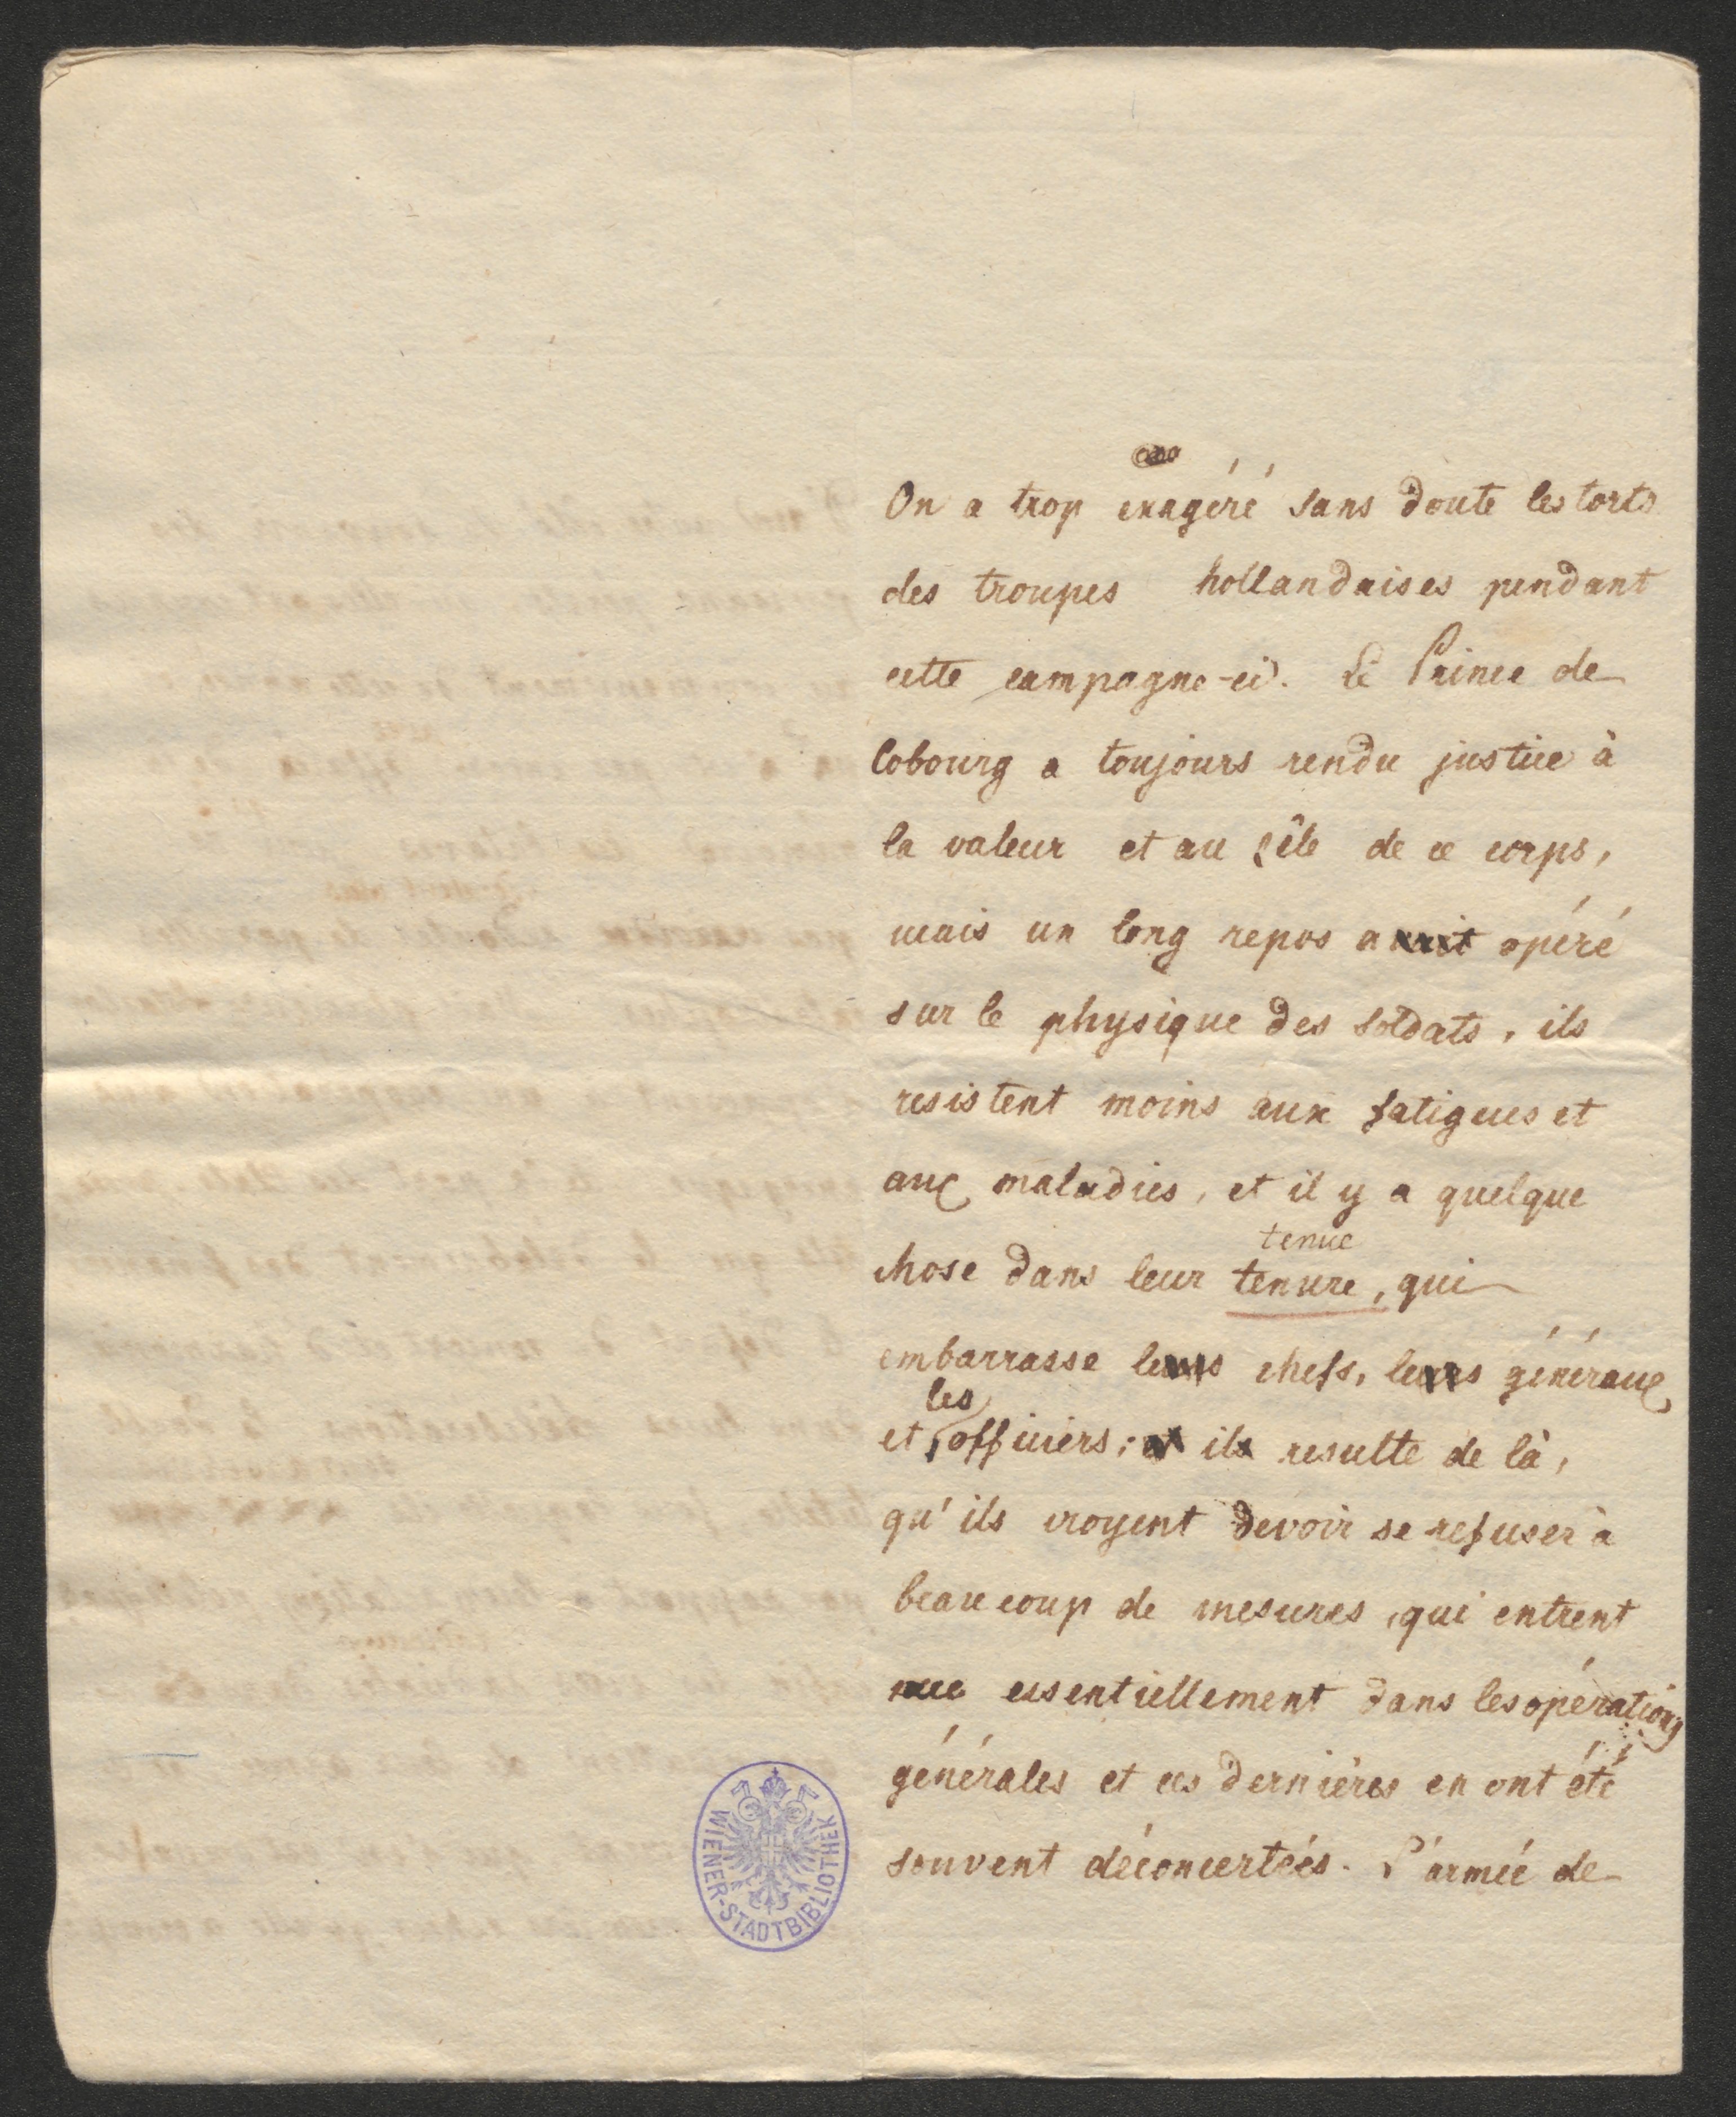 On a trop exagéré sans doute les torts
des troupes hollandaises pendant
cette campagne-ci. Le Prince de
Cobourg a toujours rendu justice à
la valeur et au zêle de ce corps,
mais un long repos a opéré
sur le physique des soldats, ils
resistent moins aux fatigues et
aux maladies, et il y a quelque
tenue
chose dans leur tenure, qui
embarrasse les chefs, les généraux
les
et officiers; il resulte de là,
qu'ils croyent devoir se refuser à
beaucoup de mesures, qui entrent
essentiellement dans les opérations
générales et ces dernières en ont été
souvent déconcertées. L'armée de
WIENER-STADTBIBLIOTHEK